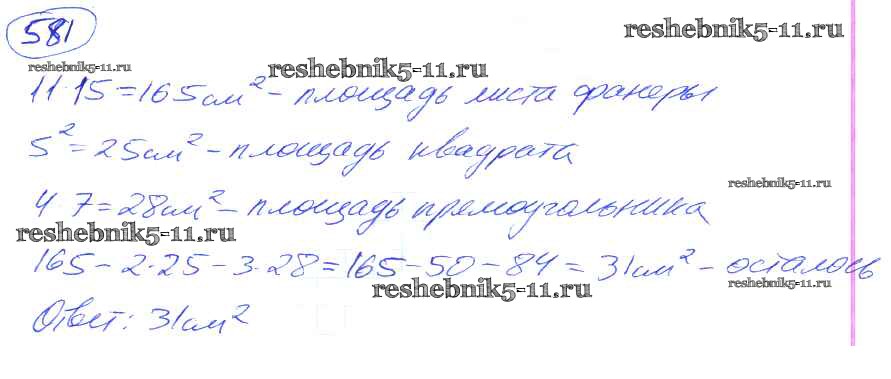 581
reshebnik5-11.ru
reshebnik5-11.ru
reshebnik5-11.ru
11·15=165см² – площадь листа фанеры
5²=25см² – площадь квадрата
reshebnik5-11.ru
4·7=28см² – площадь прямоугольника
reshebnik5-11.ru
165–2·25–3·28=165–50–84=31см² – осталось
reshebnik5-11.ru
reshebnik5-11.ru
Ответ: 31см²